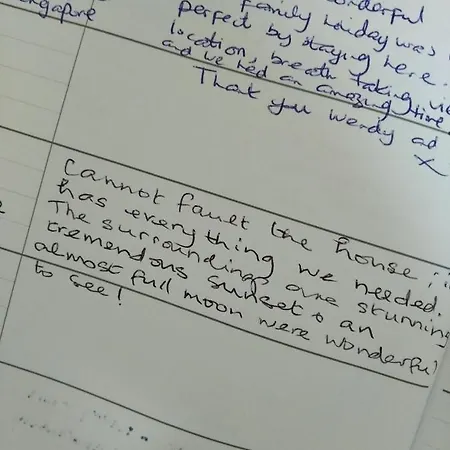 Singapore
wonderful
family holiday was
perfect by staying here.
location, breath taking
and we had an amazing time
Thank you Wendy ad
X
Cannot fault the house; it
has everything we needed.
The surroundings are stunning
tremendous sunset & an
almost full moon were wonderful
to see!